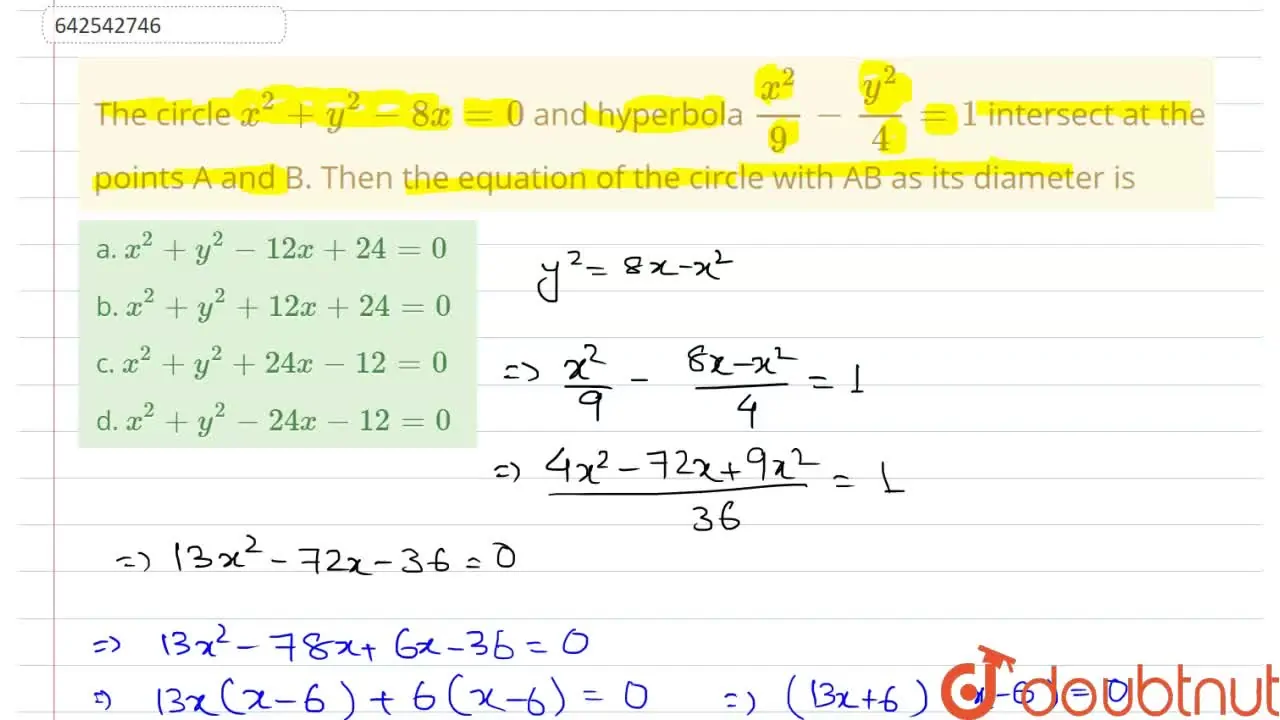 642542746
The circle x² + y² − 8x = 0 and hyperbola x²/9 − y²/4 = 1 intersect at the
points A and B. Then the equation of the circle with AB as its diameter is
a. x² + y² − 12x + 24 = 0
b. x² + y² + 12x + 24 = 0
c. x² + y² + 24x − 12 = 0
d. x² + y² − 24x − 12 = 0
y² = 8x − x²
=> x²/9 − (8x − x²)/4 = 1
=> (4x² − 72x + 9x²)/36 = 1
=> 13x² − 72x − 36 = 0
=> 13x² − 78x + 6x − 36 = 0
=> 13x(x − 6) + 6(x − 6) = 0 => (13x + 6)(x − 6) = 0
doubtnut